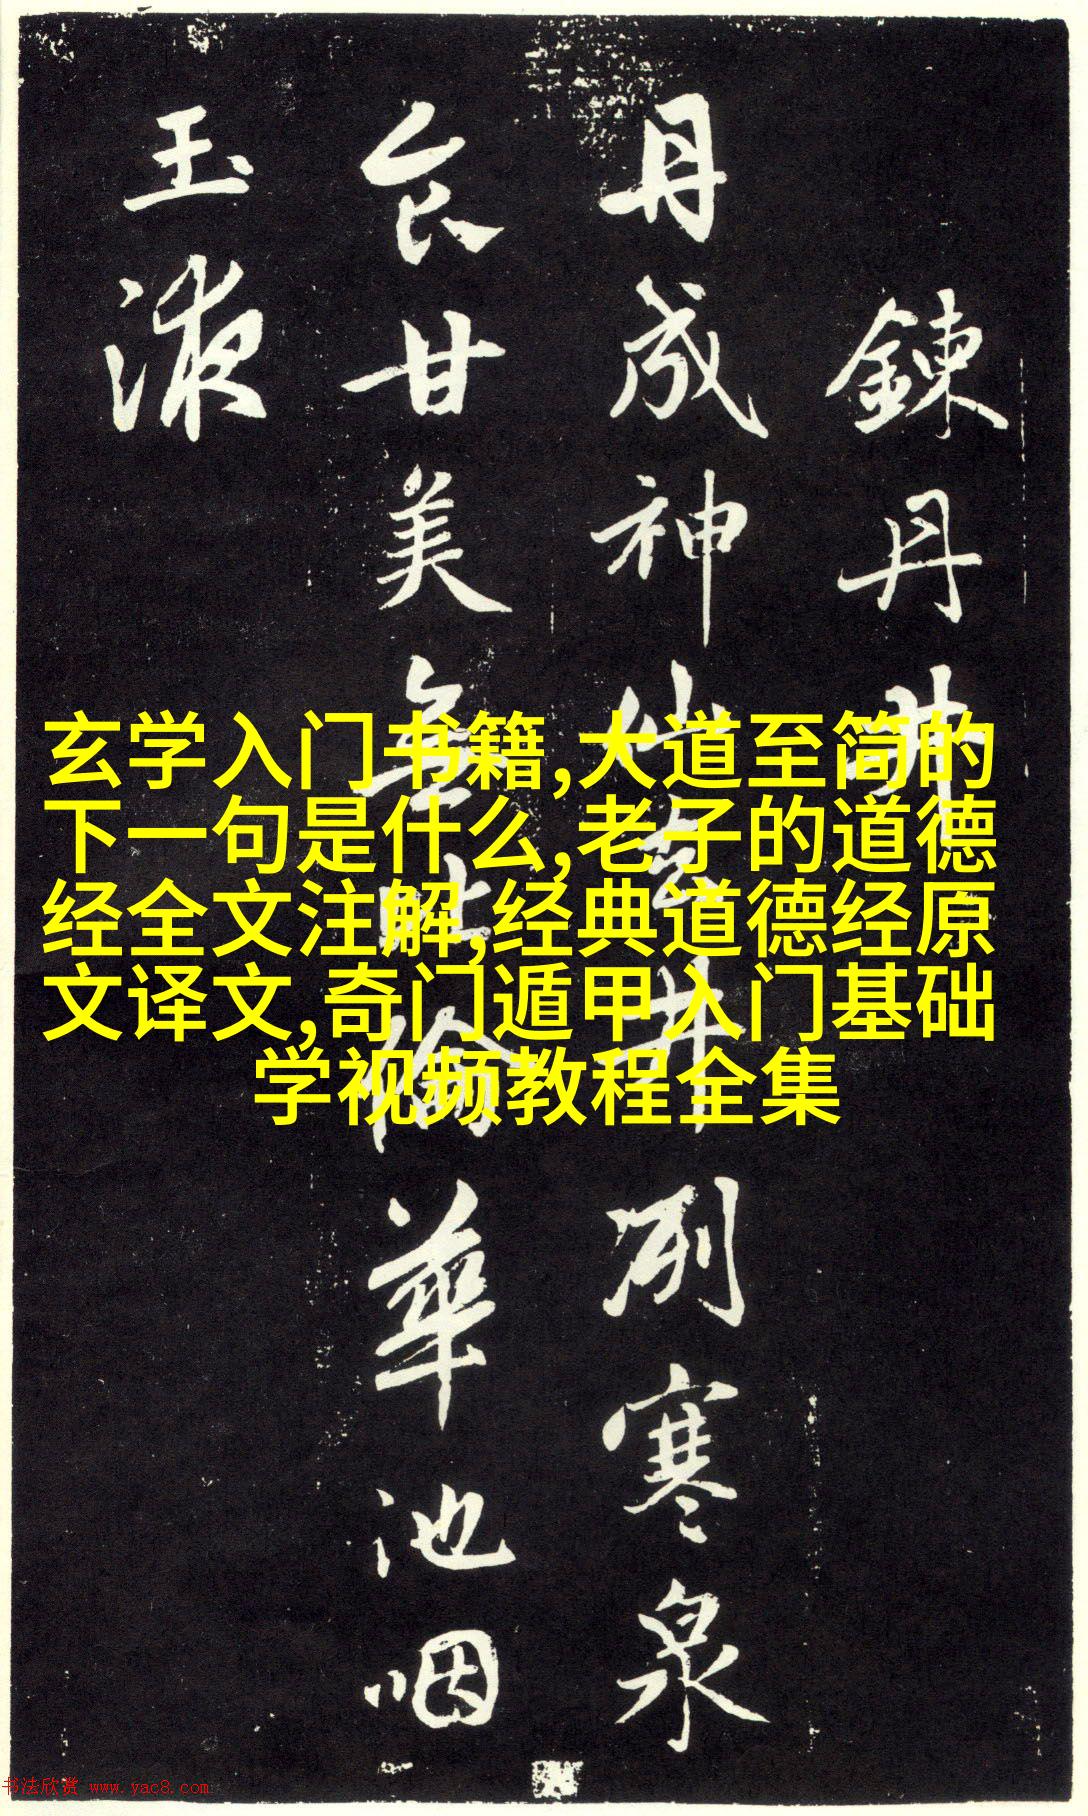 鍊丹井
丹成神仙去井冽寒泉
食甘美無比倫華池咽
玉液
玄学入门书籍,大道至简的
下一句是什么,老子的道德
经全文注解,经典道德经原
文译文,奇门遁甲入门基础
学视频教程全集
书法欣赏 www.yac8.com